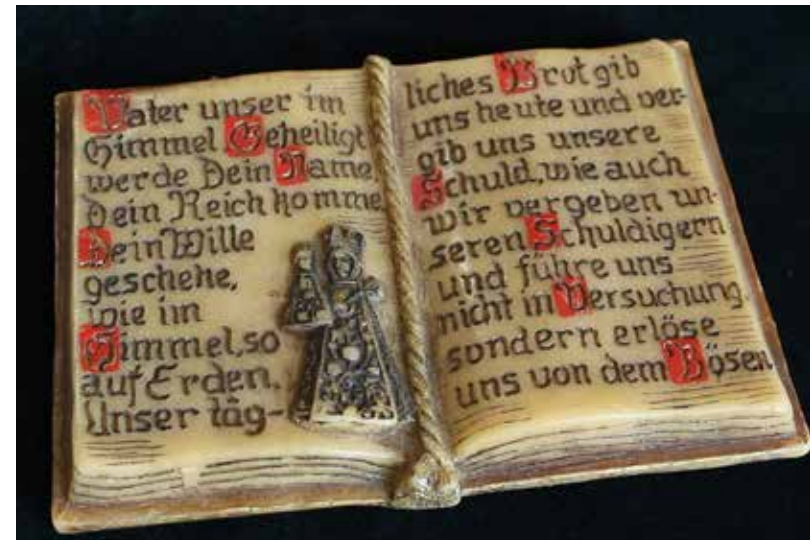 Vater unser im
Himmel Geheiligt
werde Dein Name,
Dein Reich komme
Dein Wille
geschehe,
wie im
Himmel, so
auf Erden.
Unser täg-
liches Brot gib
uns heute und ver-
gib uns unsere
Schuld, wie auch
wir vergeben un-
seren Schuldigern
und führe uns
nicht in Versuchung.
sondern erlöse
uns von dem Bösen